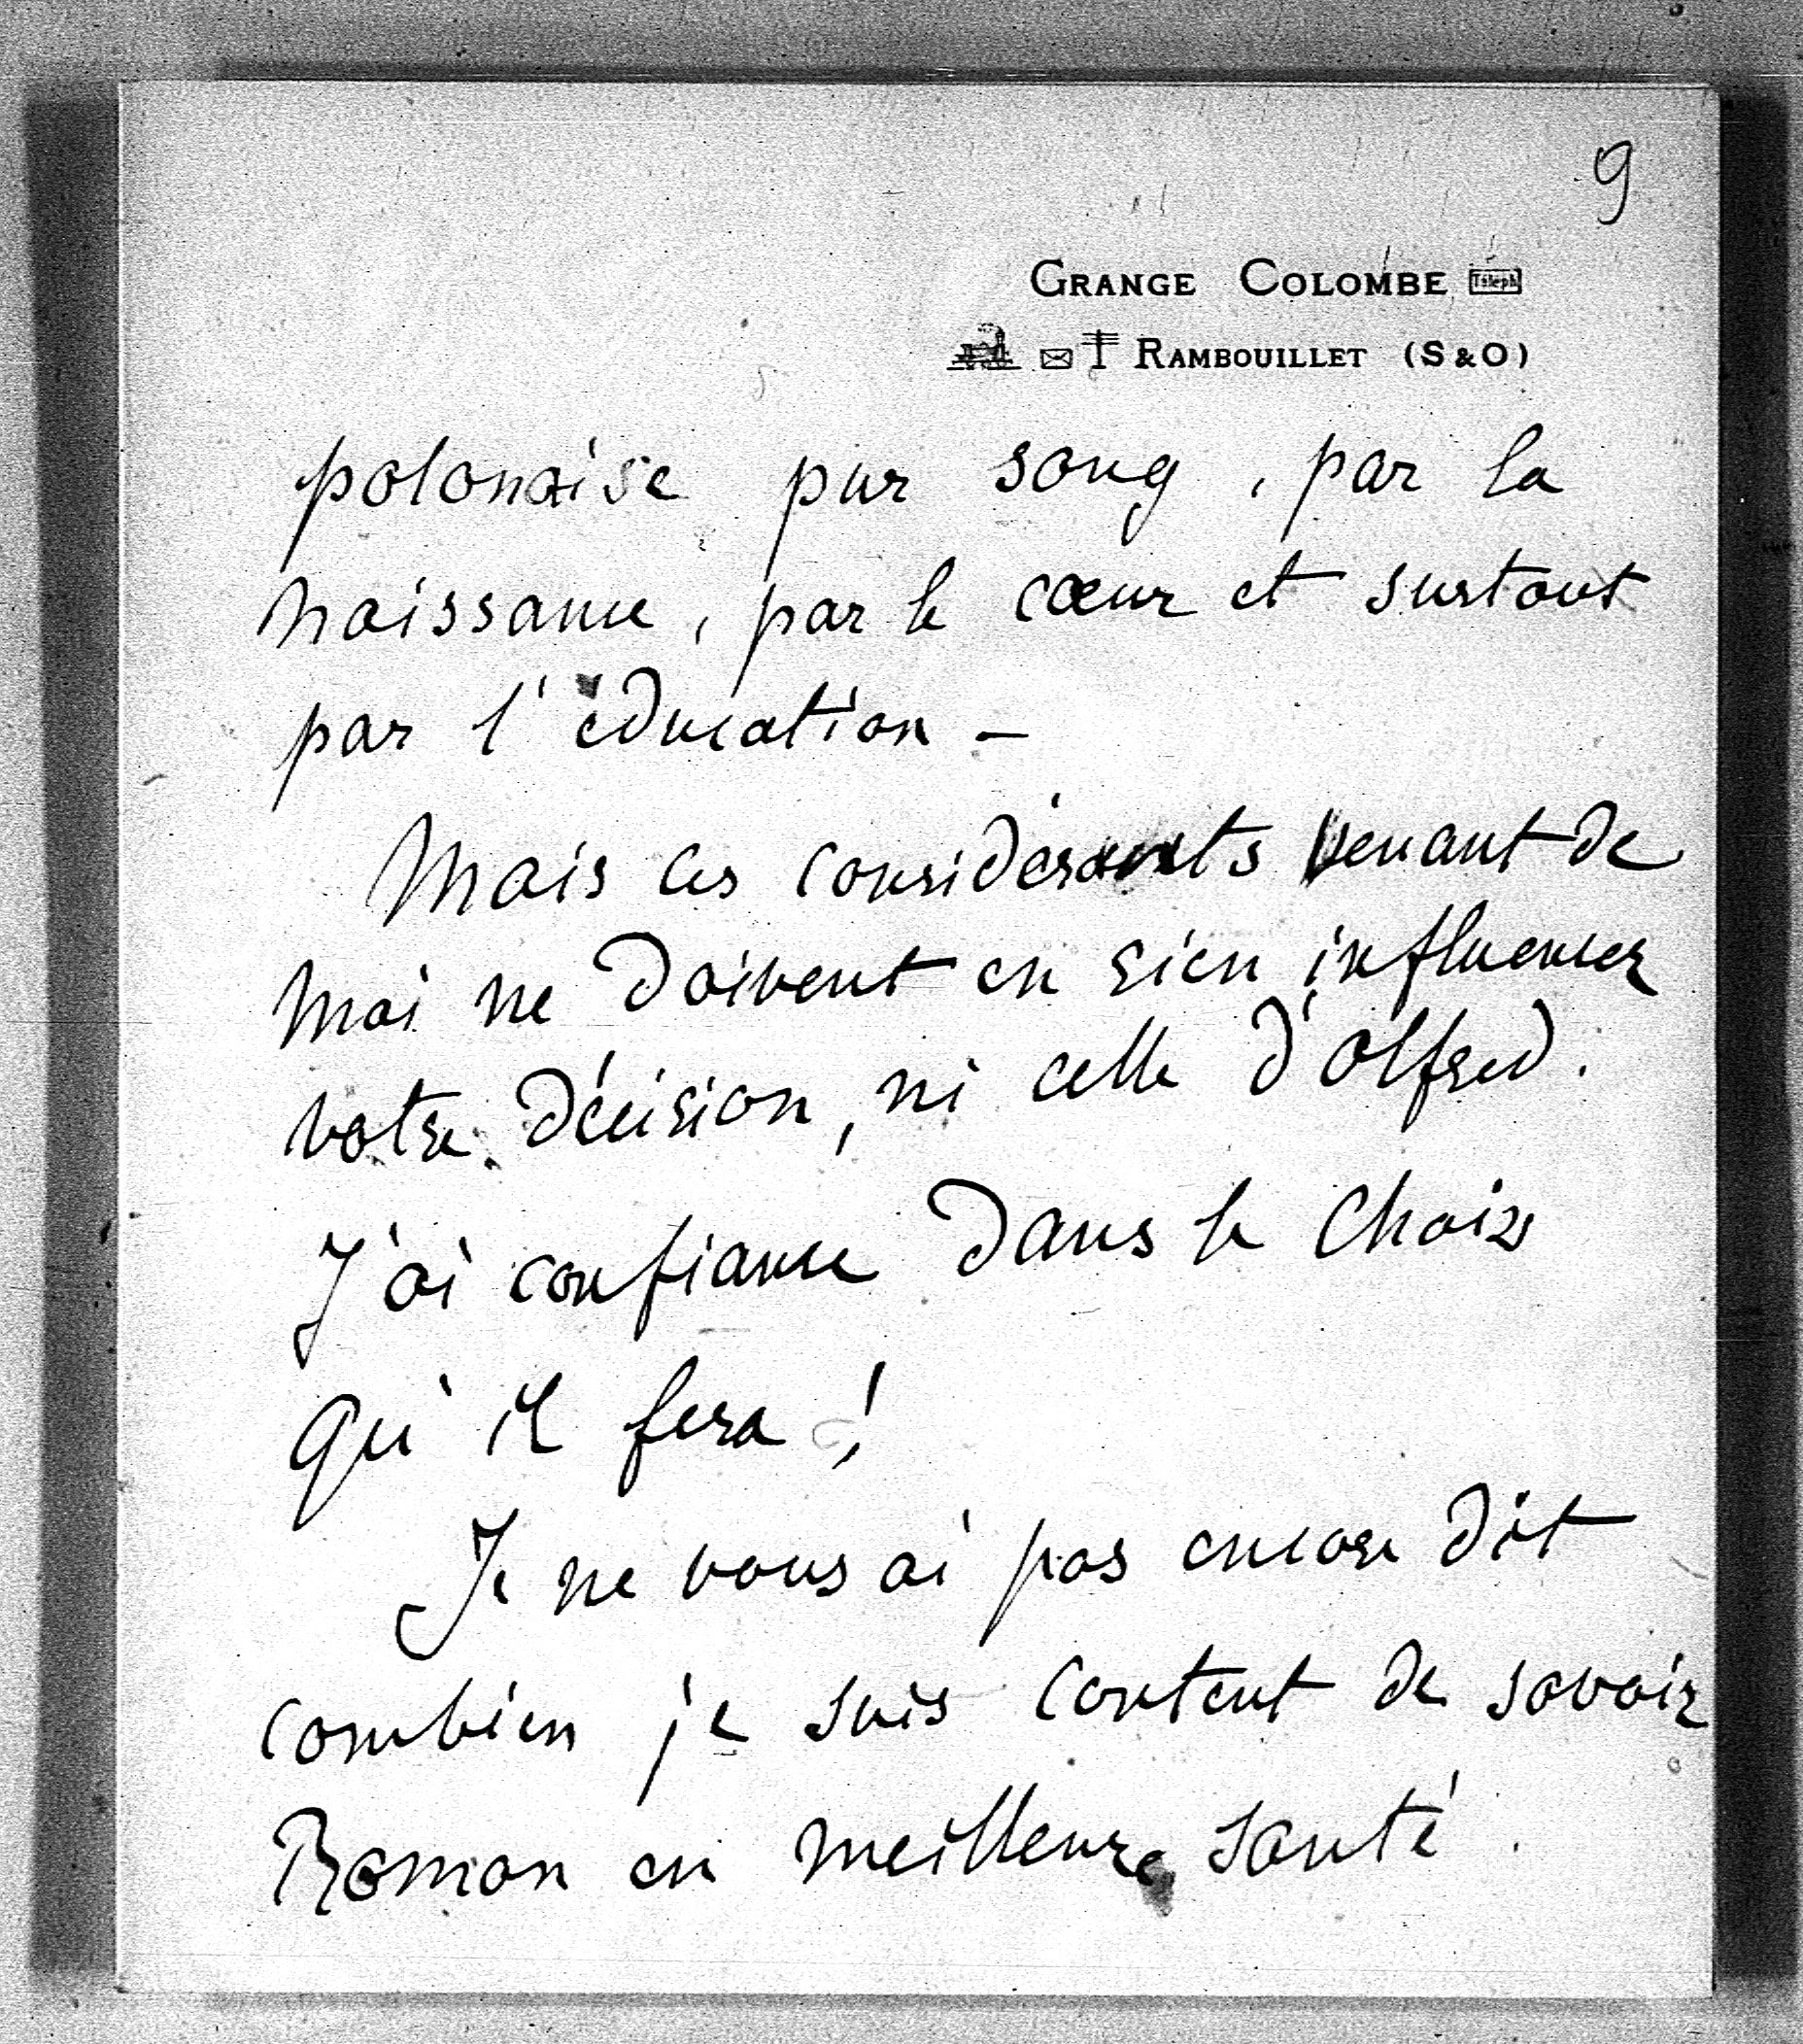 9
GRANGE COLOMBE Téleph
RAMBOUILLET (S & O)
polonaise pur sang, par la
naissance, par le cœur et surtout
par l'éducation —
Mais ces considérants venant de
moi ne doivent en rien influencer
votre décision, ni celle d'Alfred.
J'ai confiance dans le choix
qu'il fera !
Je ne vous ai pas encore dit
combien je suis content de savoir
Roman en meilleure santé.